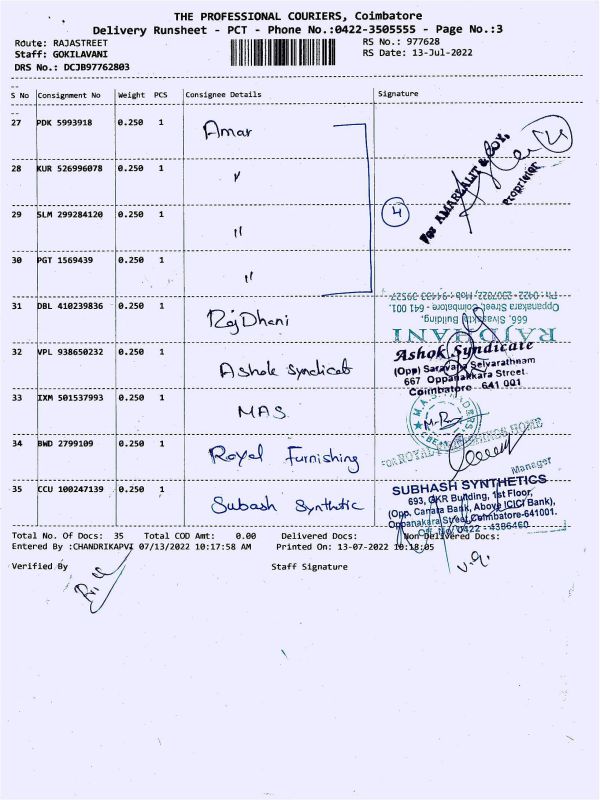 THE PROFESSIONAL COURIERS, Coimbatore
Delivery Runsheet - PCT - Phone No.:0422-3505555 - Page No.:3
Route: RAJASTREET
RS No.: 977628
Staff: GOKILAVANI
RS Date: 13-Jul-2022
DRS No.: DCJB97762803
S No Consignment No Weight PCS Consignee Details Signature
27 PDK 5993918 0.250 1 Amar
For AMARLALIT & COY,
Proprietor
28 KUR 526996078 0.250 1 "
29 SLM 299284120 0.250 1 "
4
30 PGT 1569439 0.250 1 "
31 DBL 410239836 0.250 1 RajDhani
RAJDHANI
666, Sivasakthi Building,
Oppanakara Street, Coimbatore - 641 001.
32 VPL 938650232 0.250 1 Ashok Syndicat
Ashok Syndicate
(Opp) Saravana Selvarathnam
667 Oppanakkara Street
Coimbatore - 641 001
33 IXM 501537993 0.250 1 MAS
34 BWD 2799109 0.250 1 Royal Furnishing
FOR ROYAL FURNISHINGS HOME
Manager
35 CCU 100247139 0.250 1 Subash Synthetic
SUBHASH SYNTHETICS
693, GKR Building, 1st Floor,
(Opp. Canara Bank, Above ICICI Bank),
Oppanakara Street, Coimbatore-641001.
0422 - 4386460
Total No. Of Docs: 35 Total COD Amt: 0.00 Delivered Docs: Non Delivered Docs:
Entered By :CHANDRIKAPVI 07/13/2022 10:17:58 AM Printed On: 13-07-2022 10:18:05
Verified By Staff Signature